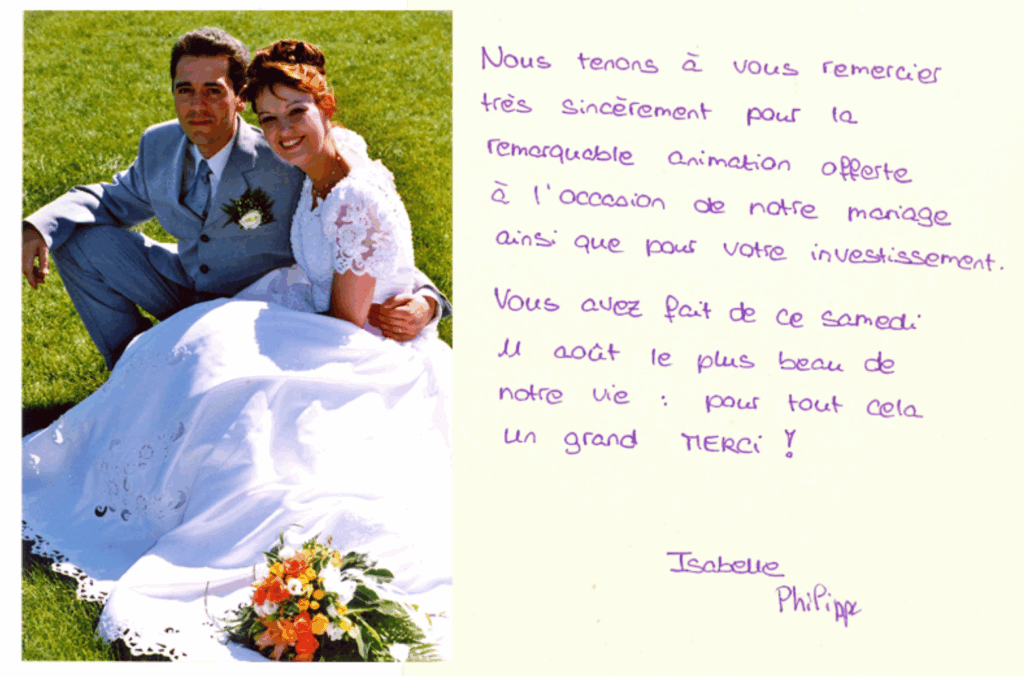 Nous tenons à vous remercier
très sincèrement pour la
remarquable animation offerte
à l'occasion de notre mariage
ainsi que pour votre investissement.
Vous avez fait de ce samedi
11 août le plus beau de
notre vie : pour tout cela
un grand MERCi !
Isabelle
Philippe